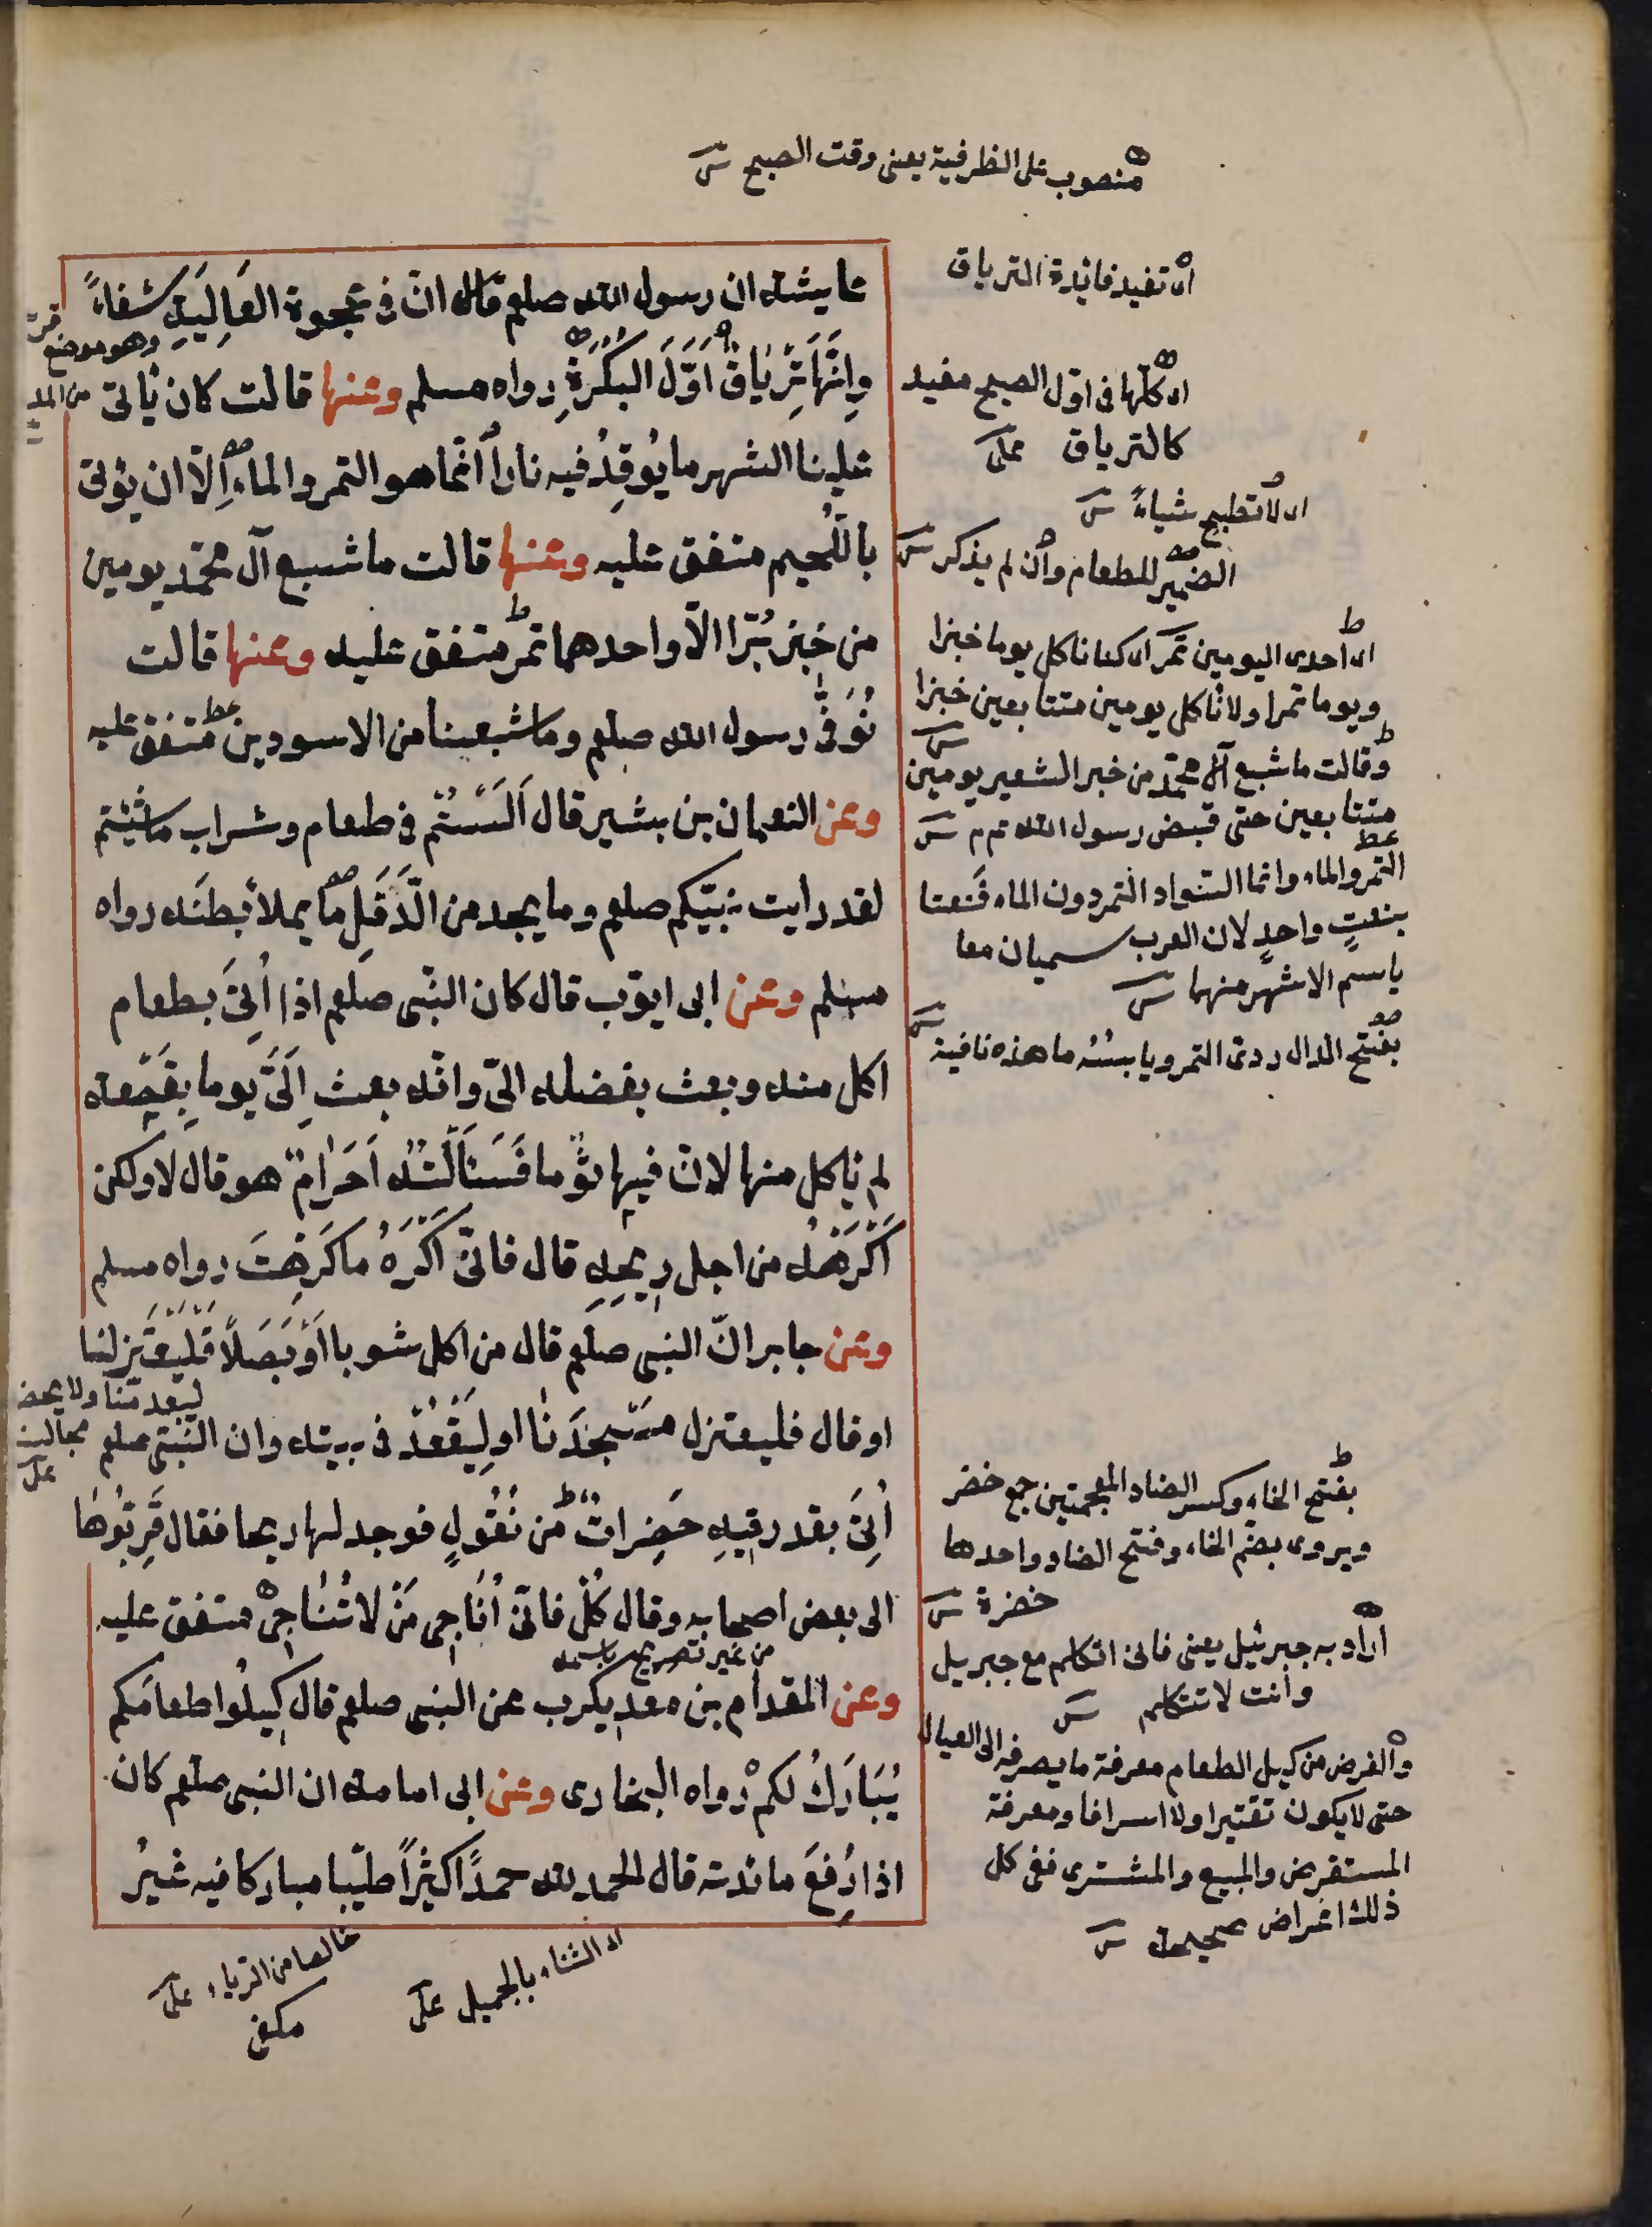 منصوب على الظرفية يعنى وقت الصبح
عايشة ان رسول الله صلعم قال انّ فى عجوة العَالِيَةِ شفاءً
وَاِنَّهَا تِرْيَاقٌ اَوَّلَ البُكْرَةِ رواه مسلم وعنها قالت كان يأتى
علينا الشهر ما يُوقِدُ فيه نارا انّما هو التمر والماء اِلّا ان يؤتى
باللُّحَيم متفق عليه وعنها قالت ما شبع آل محمّد يومين
من خبز بُرّ الّا واحدهما تمر متفق عليه وعنها قالت
تُوُفِّىَ رسول الله صلعم وما شبعنا من الاسودين متفق عليه
وعن النعمان بن بشير قال اَلَسْتُم فى طعام وشراب ما شئتم
لقد رايت نبيّكم صلعم وما يجد من الدَّقَلِ ما يملأ بطنَه رواه
مسلم وعن ابى ايّوب قال كان النبى صلعم اذا اُتِىَ بطعام
اكل منه وبعث بفضله الىّ وانّه بعث اِلَىَّ يوما بِقَصْعة
لم يأكل منها لانّ فيها ثوما فَسَأَلْتُه اَحَرَامٌ هو قال لا ولكن
اَكْرَهُه من اجل رِيحِهِ قال فانّى اَكْرَهُ ما كَرِهْتَ رواه مسلم
وعن جابر انّ النبى صلعم قال من اكل ثوما اَوْ بَصَلًا فَلْيَعْتَزِلْنا
او قال فليعتزل مَسْجِدَنا او لِيَقْعُدْ فى بيته وان النّبى صلعم
اُتِىَ بقدر فيهِ خَضِرَاتٌ من بُقُولٍ فوجد لها ريحا فقال قَرِّبُوها
الى بعض اصحابه وقال كُلْ فانّى اُنَاجِى مَنْ لا تُنَاجِى متفق عليه
من غير تصريح باسمه
وعن المقدام بن معديكرب عن النبى صلعم قال كِيلُوا طعامَكم
يُبَارَكْ لكم رواه البخارى وعن ابى امامة ان النبى صلعم كان
اذا رُفِعَ مائدته قال الحمد لله حمدًا كثيرًا طيّبا مباركا فيه غيرُ
اى تفيد فائدة الترياق
اى كلها فى اوّل الصبح مفيد
كالترياق على
اى لا نطبخ شيأً
الضمير للطعام وان لم يذكر
اى احدى اليومين تمر اى كنا نأكل يوما خبزا
ويوما تمرا ولا نأكل يومين متتابعين خبزا
وقالت ما شبع آل محمّد من خبز الشعير يومين
متتابعين حتى قبض رسول الله
التمر والماء وانما السّواد التمر دون الماء فنعتا
بنعتٍ واحدٍ لان العرب يسميان معا
باسم الاشهر منهما
بفتح الدال ردئ التمر ويابسه ما هذه نافية
بفتح الخاء وكسر الضاد المعجمتين جمع خضر
ويروى بضم الخاء وفتح الضاد واحدها
خضرة
اراد به جبرئيل يعنى فانى اتكلم مع جبريل
وانت لا تتكلم
والغرض من كيل الطعام معرفة ما يصرفه الى العيال
حتى لا يكون تقتيرا ولا اسرافا ومعرفة
المستقرض والمبيع والمشترى ففى كل
ذلك اغراض صحيحة
وهو موضع
ليبعد منّا ولا يحضر
مجالسنا
على
اى الثناء بالجميل على
خالصا من الرياء على
مكفى